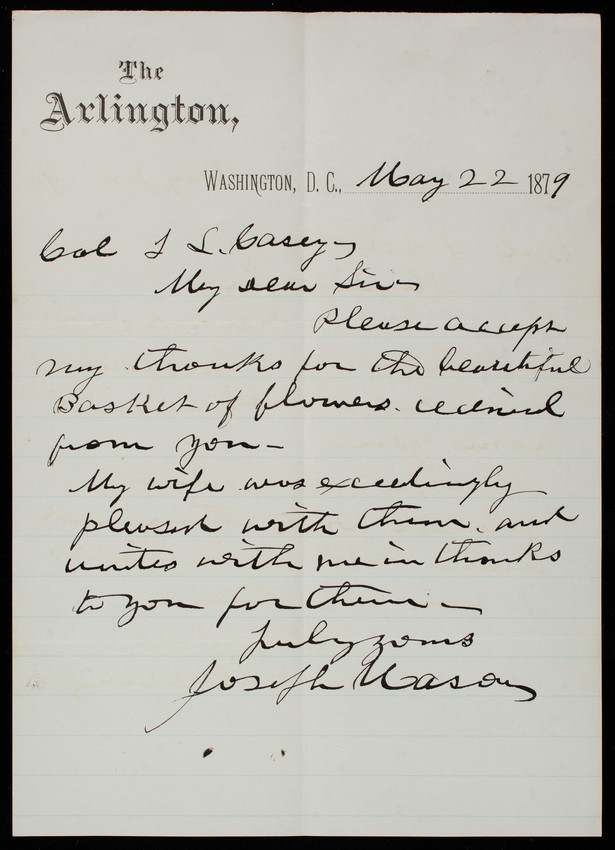 The
Arlington,
Washington, D. C., May 22 1879
Col T L. Casey
My dear Sir
Please accept
my thanks for the beautiful
Basket of flowers. recieved
from you -
My wife was exceedingly
pleased with them. and
unites with me in thanks
to you for them -
truly yours
Joseph Nason